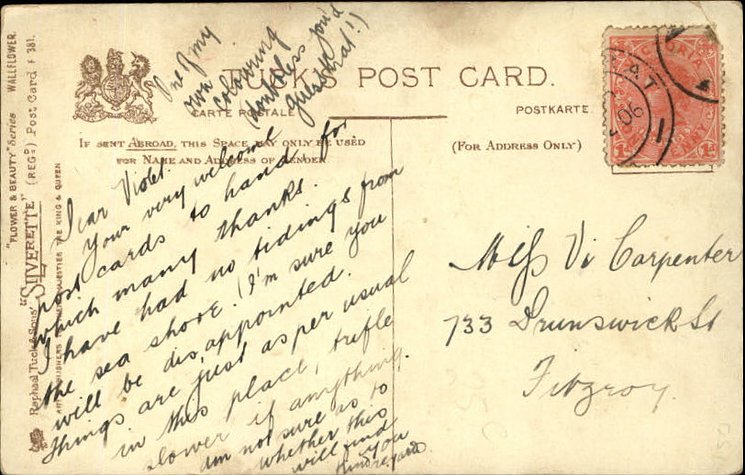 "FLOWER & BEAUTY" Series WALLFLOWER.
"SILVERETTE" (REGD) Post Card F 381.
Raphael Tuck & Sons'
THE KING & QUEEN
One of my
own
colouring
(doubtless you'd
guess that!)
TUCK'S POST CARD.
CARTE POSTALE
POSTKARTE
IF SENT ABROAD, THIS SPACE MAY ONLY BE USED
FOR NAME AND ADDRESS OF SENDER
(FOR ADDRESS ONLY)
Dear Violet.
Your very welcome
post cards to hand, for
which many thanks.
I have had no tidings from
the sea shore. (I'm sure you
will be disappointed.
Things are just as per usual
in this place, trifle
slower if anything.
am not sure as to
whether this
will find
you
Kind regards
VICTORIA
06
1
Miss Vi Carpenter
733 Brunswick St
Fitzroy.